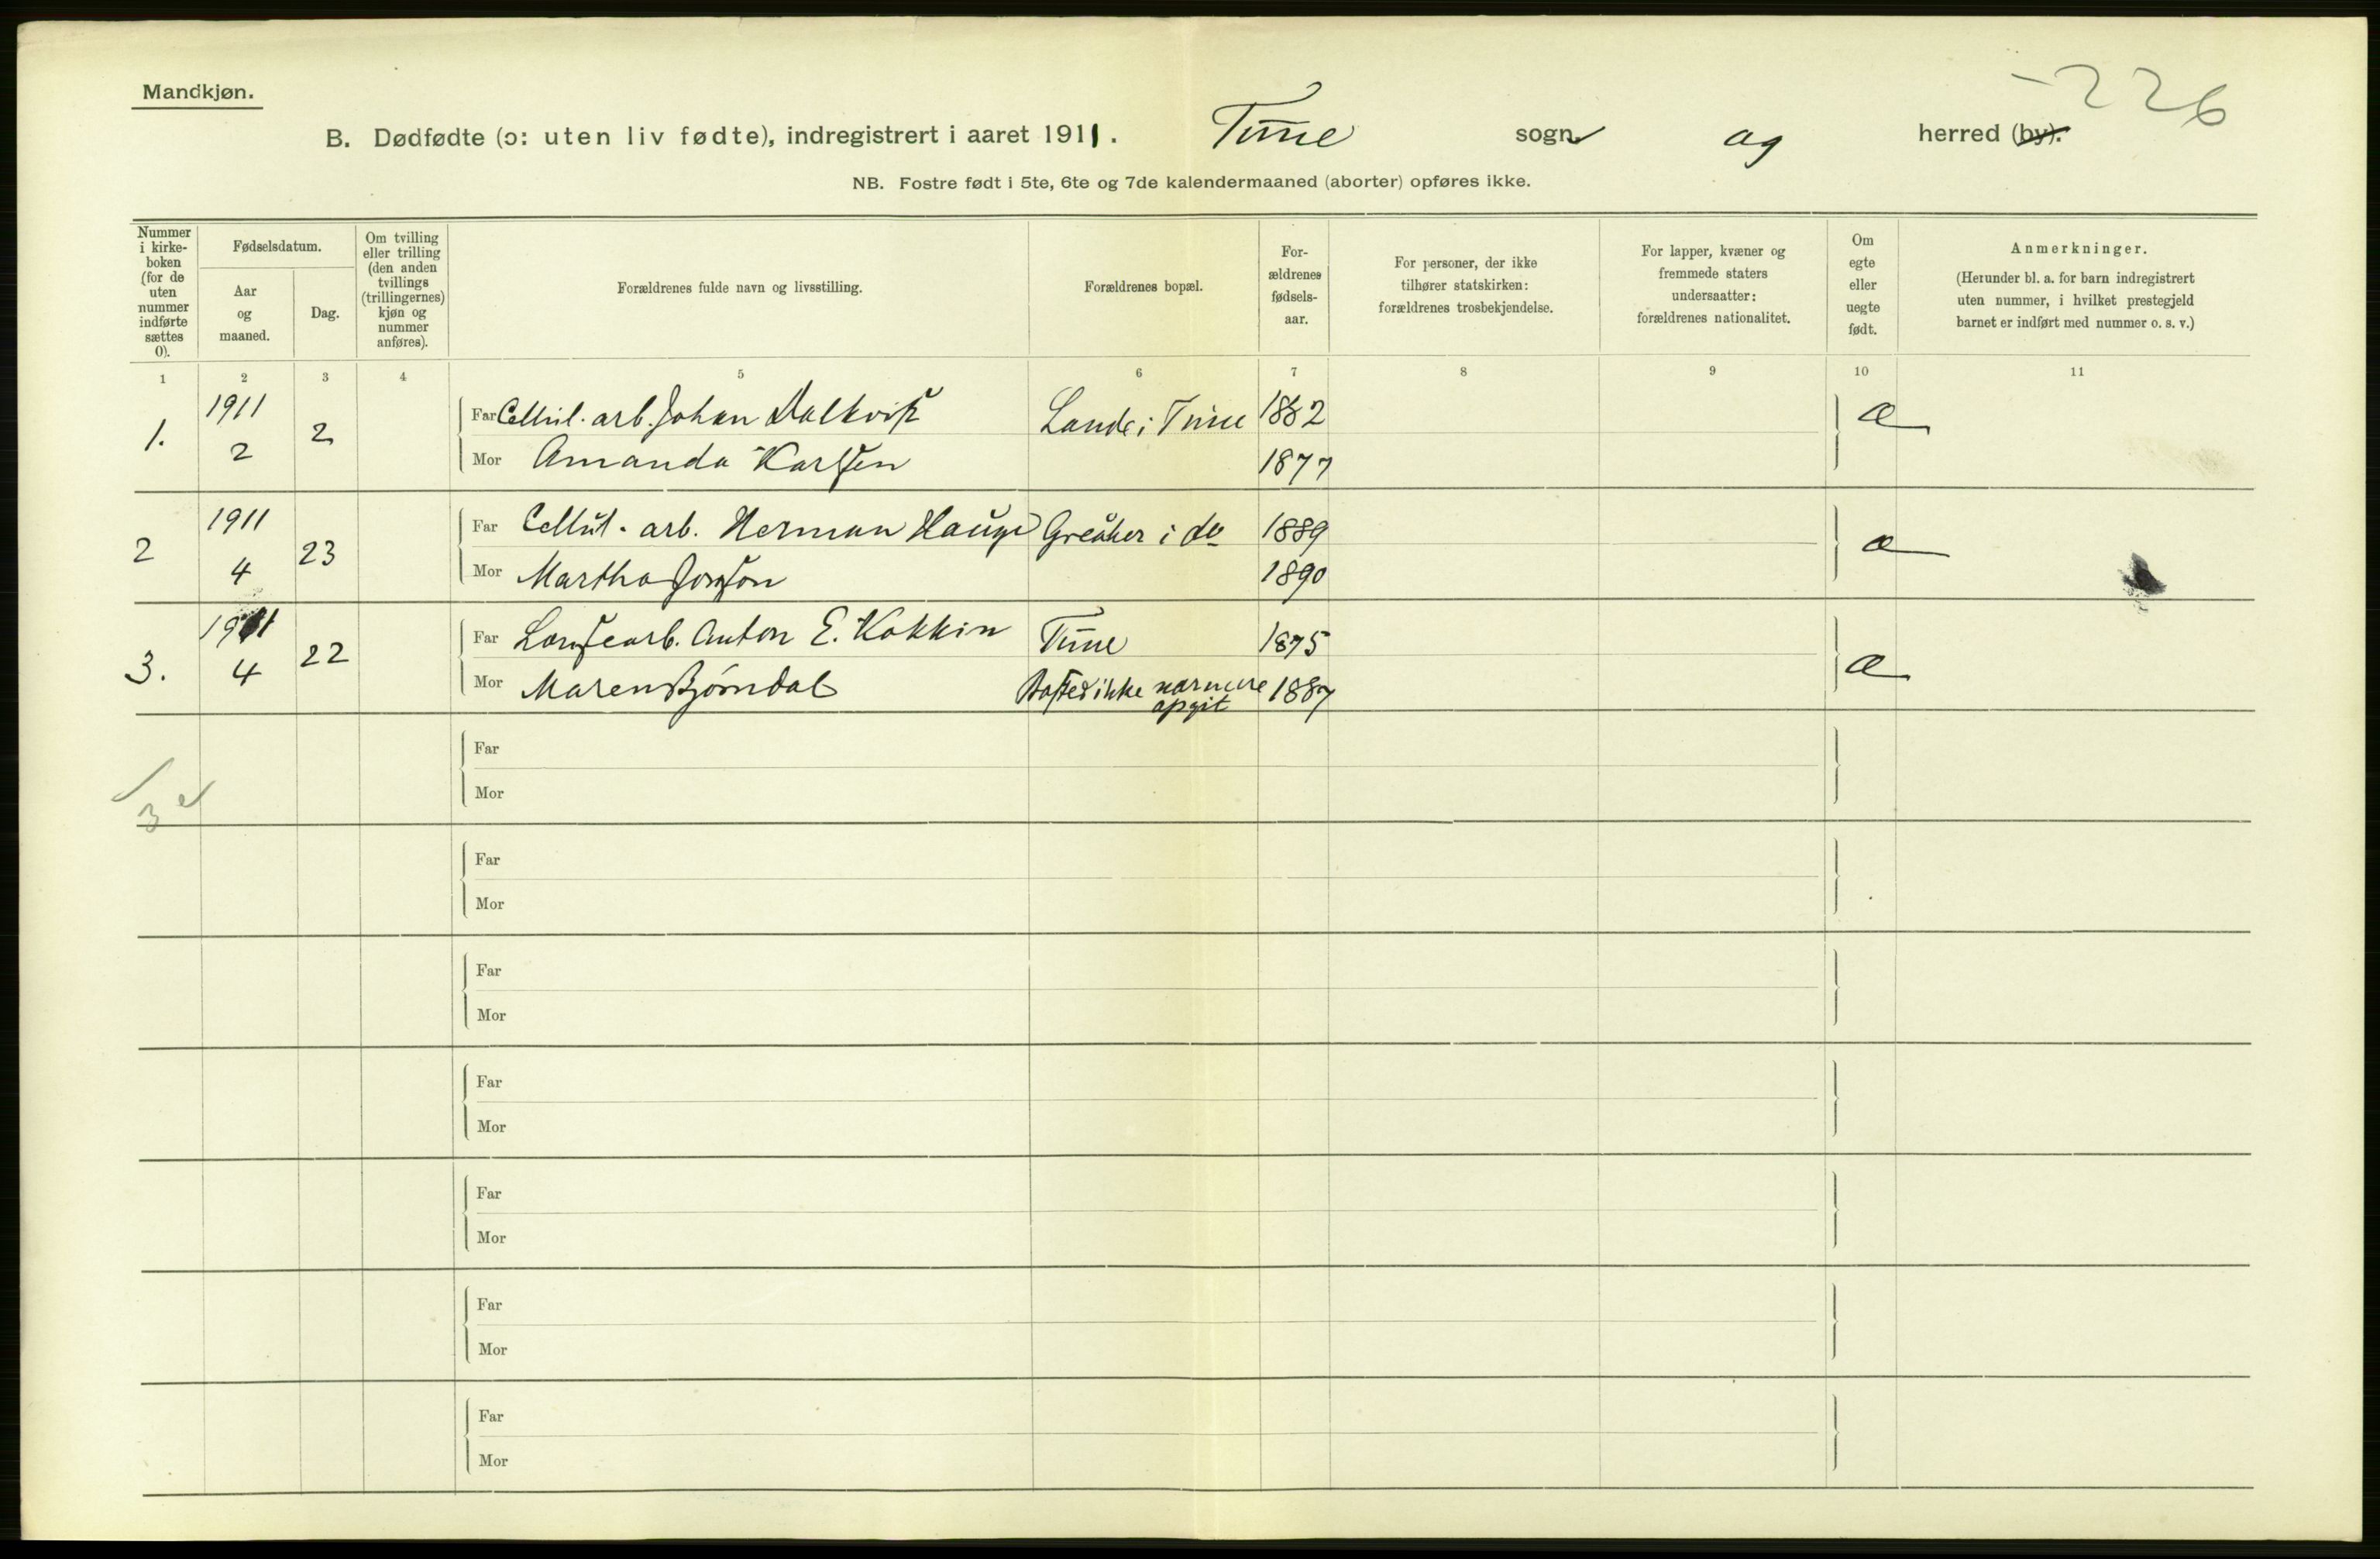 Mandkjøn.
226
B. Dødfødte (ɔ: uten liv fødte), indregistrert i aaret 1911. Tune sogn og herred (by).
NB. Fostre født i 5te, 6te og 7de kalendermaaned (aborter) opføres ikke.
Nummer
i kirke-
boken
(for de
uten
nummer
indførte
sættes
0).
Fødselsdatum.
Aar
og
maaned.
Dag.
Om tvilling
eller trilling
(den anden
tvillings
(trillingernes)
kjøn og
nummer
anføres).
Forældrenes fulde navn og livsstilling.
Forældrenes bopæl.
For-
ældrenes
fødsels-
aar.
For personer, der ikke
tilhører statskirken:
forældrenes trosbekjendelse.
For lapper, kvæner og
fremmede staters
undersaatter:
forældrenes nationalitet.
Om
egte
eller
uegte
født.
Anmerkninger.
(Herunder bl. a. for barn indregistrert
uten nummer, i hvilket prestegjeld
barnet er indført med nummer o. s. v.)
1 2 3 4 5 6 7 8 9 10 11
1. 1911 2 2
Far Cellul. arb. Johan Dalkvist Lande i Tune 1882 Æ
Mor Amanda Karlsen 1877
2 1911 4 23
Far Cellul. arb. Herman Hauge Greåker i do 1889 Æ
Mor Martha Jonson 1890
3. 1911 4 22
Far Lændsearb. Anton E. Kokkin Tune 1875 Æ
Mor Maren Bjørndal Bosted ikke nærmere 1887
opgit
Far
Mor
3
Far
Mor
Far
Mor
Far
Mor
Far
Mor
Far
Mor
Far
Mor